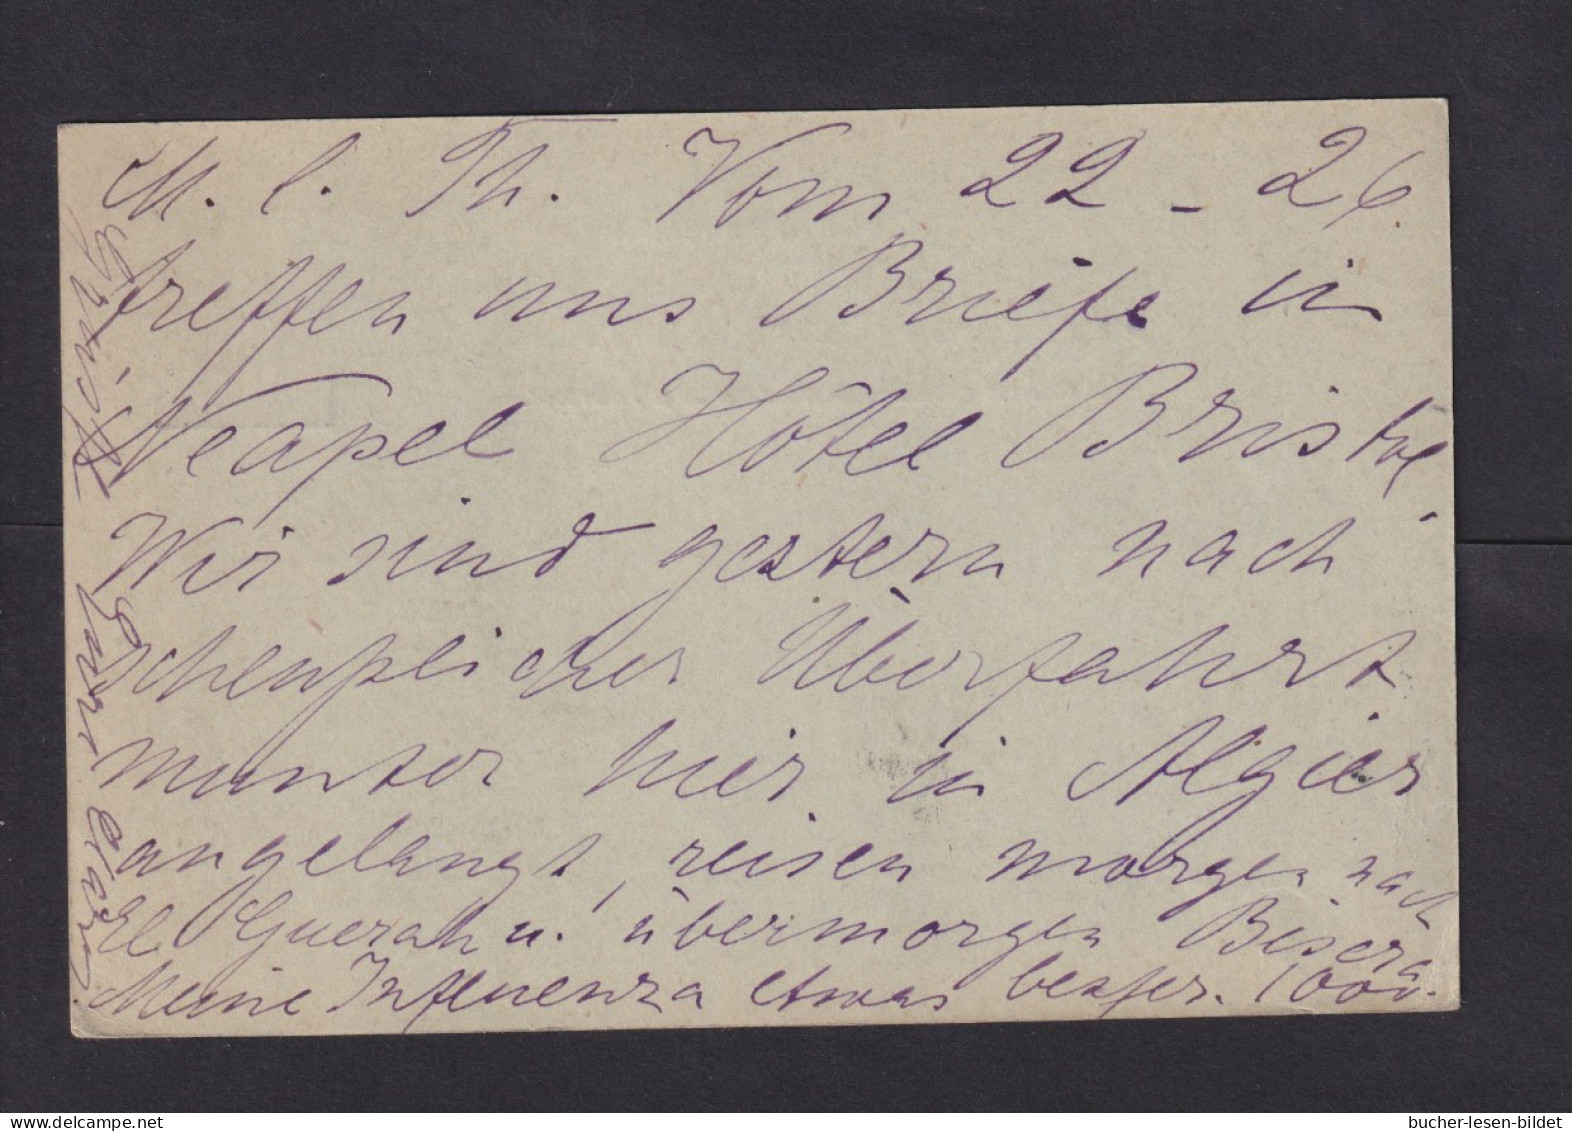 M. l. Th. Vom 22 - 26.
treffen uns Briefe in
Neapel Hôtel Bristol.
Wir sind gestern nach
scheußlicher Überfahrt
munter hier in Algier
angelangt, reisen morgen nach
El Guerah u. übermorgen Biscra
Meine Influenza etwas besser. 1000
Eure Clara.
bucher-lesen-bildet